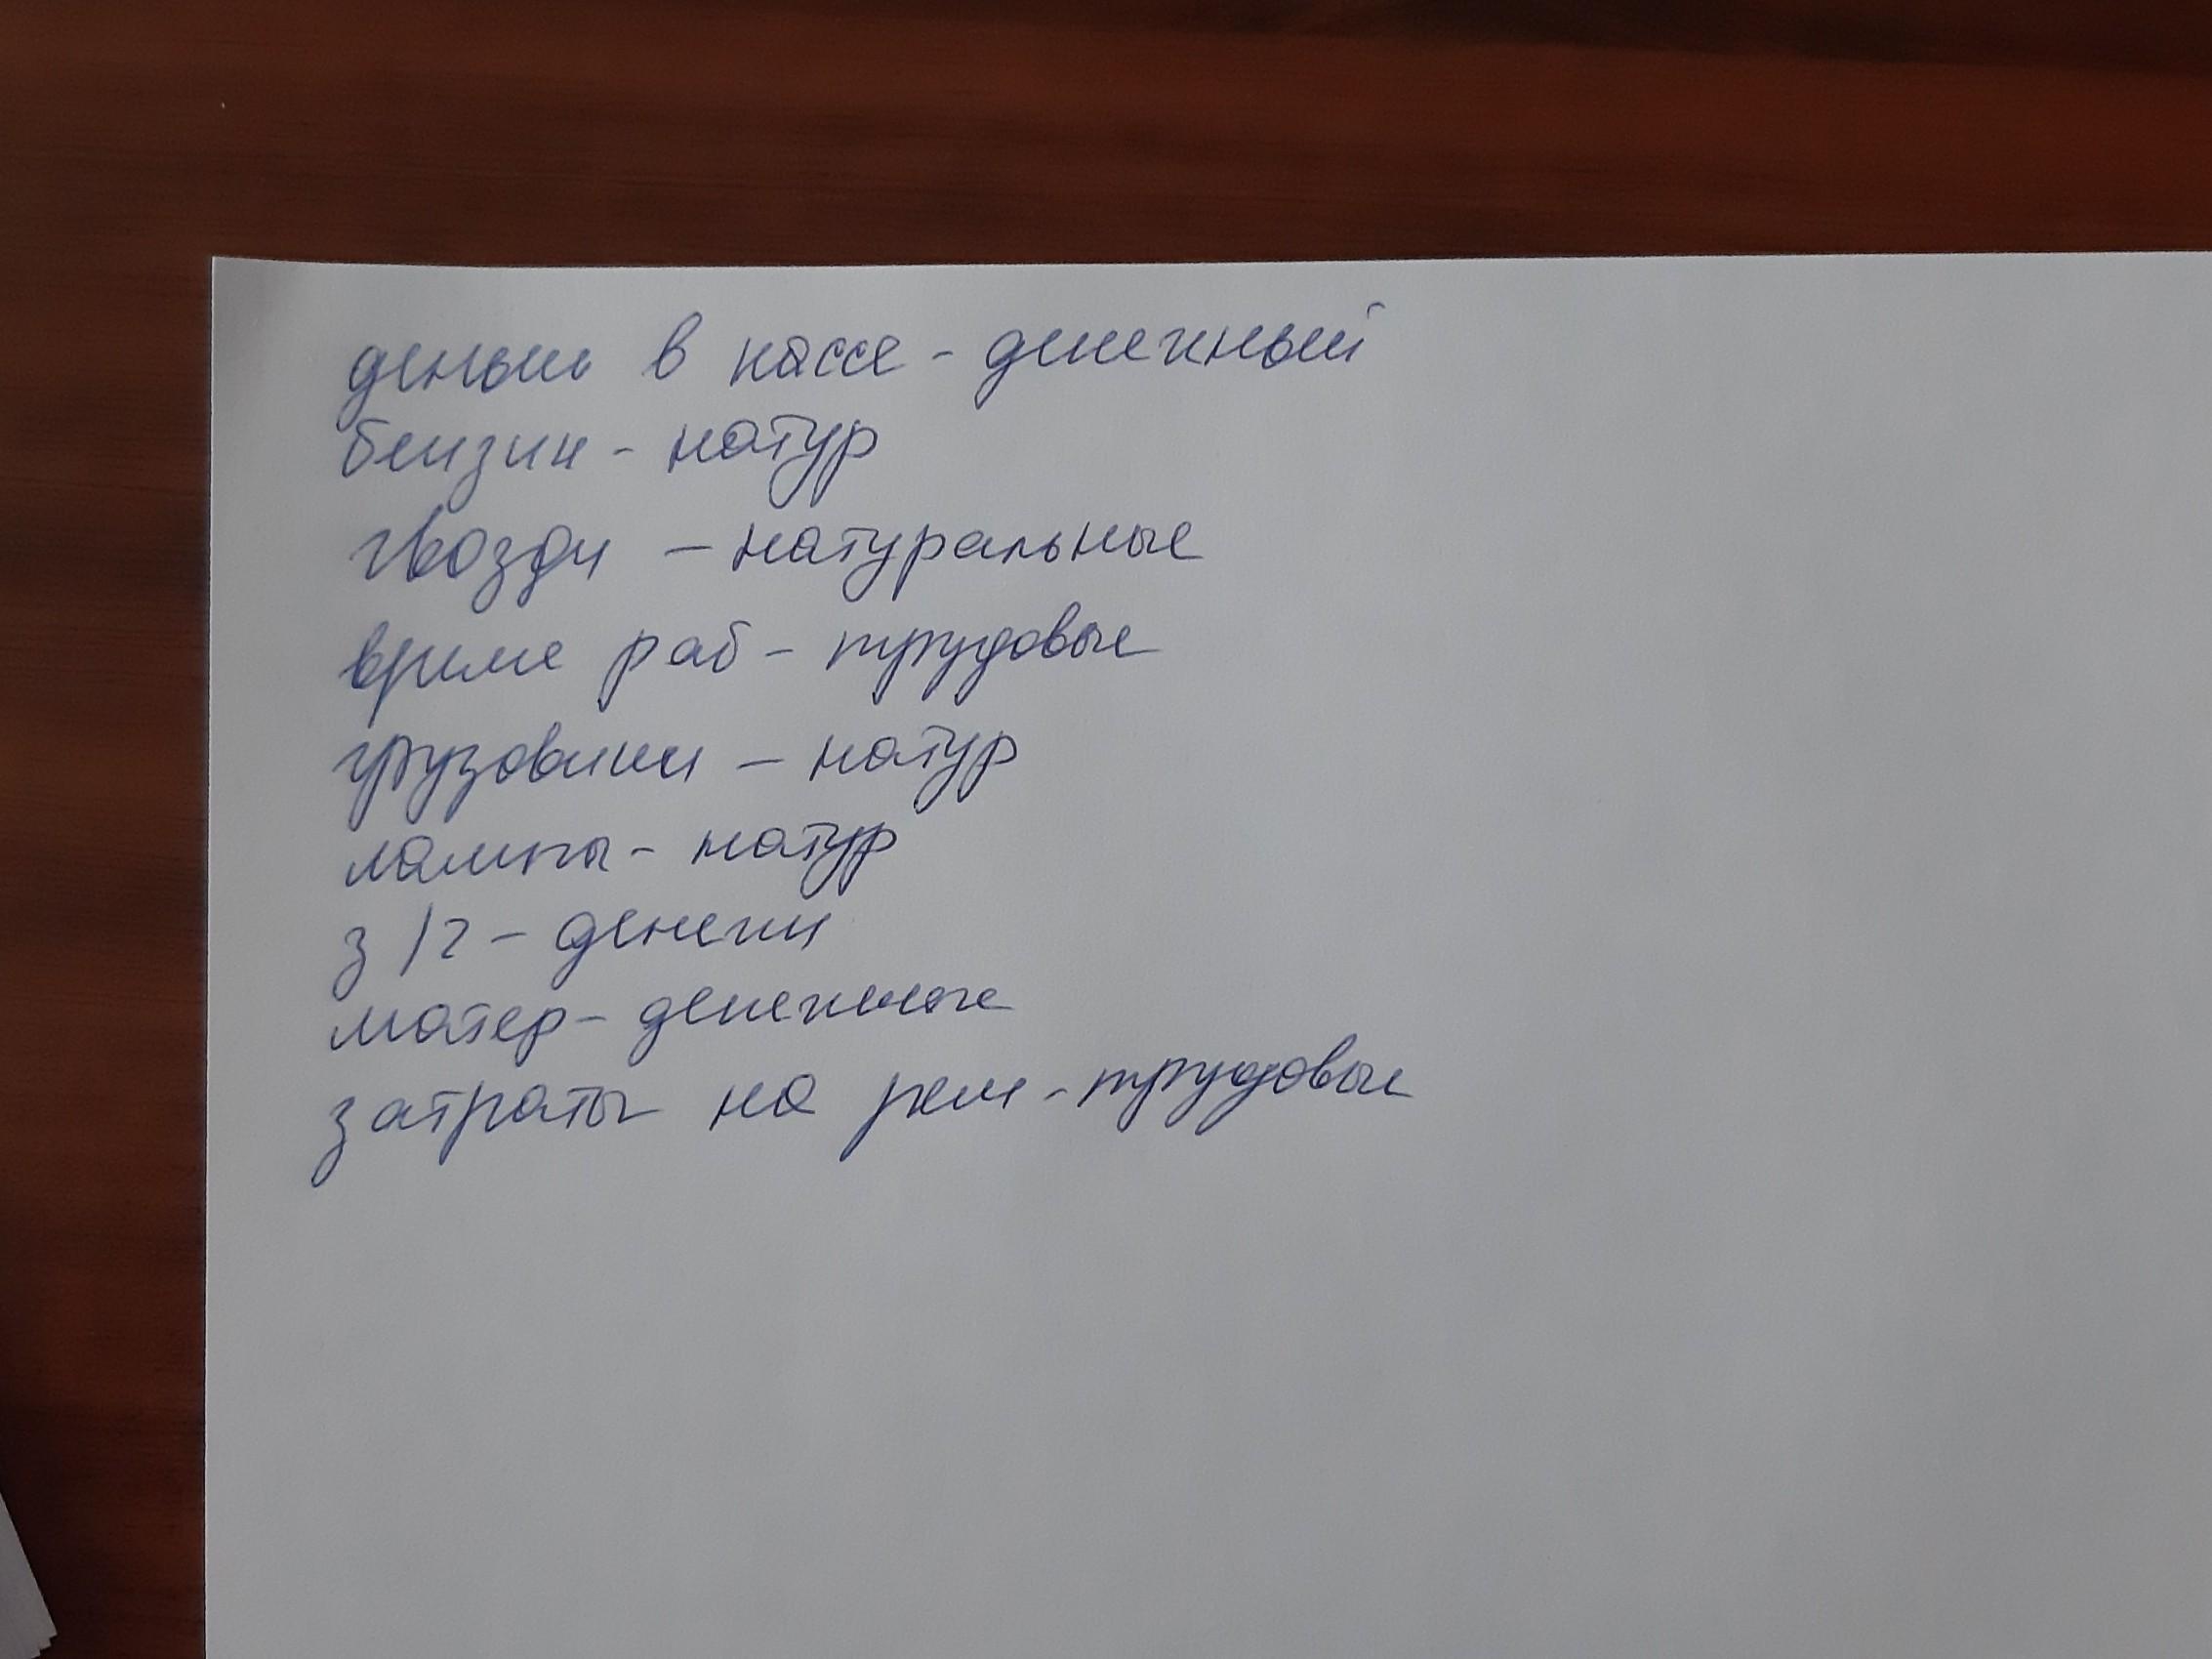 деньги в кассе - денежный
бензин - натур
гвозди - натуральные
время раб - трудовые
грузовики - натур
лампы - натур
з/п - денежн
матер - денежные
затраты на рем - трудовые